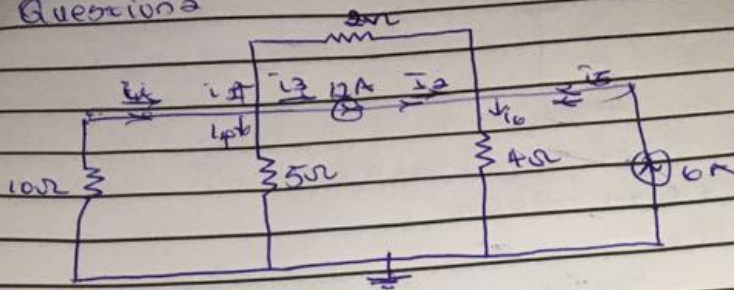 Question2
2Ω
i1 i3 12A I2 i5
i4 i6
10Ω 5Ω 4Ω 6A